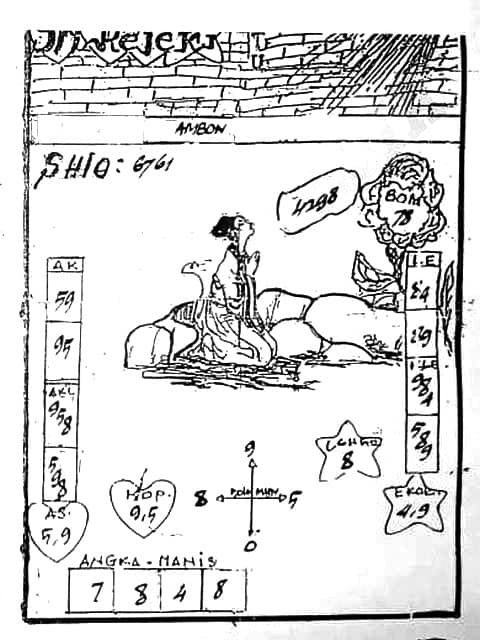 Sri Rejeki
AMBON
SHIO: 6761
4298
BOM
78
AK
59
95
AKL
958
598
AS.
5,9
KOP.
9,5
9
8
5
0
8
EKOR
4,9
I.E
29
984
589
ANGKA-MANIS
7 8 4 8